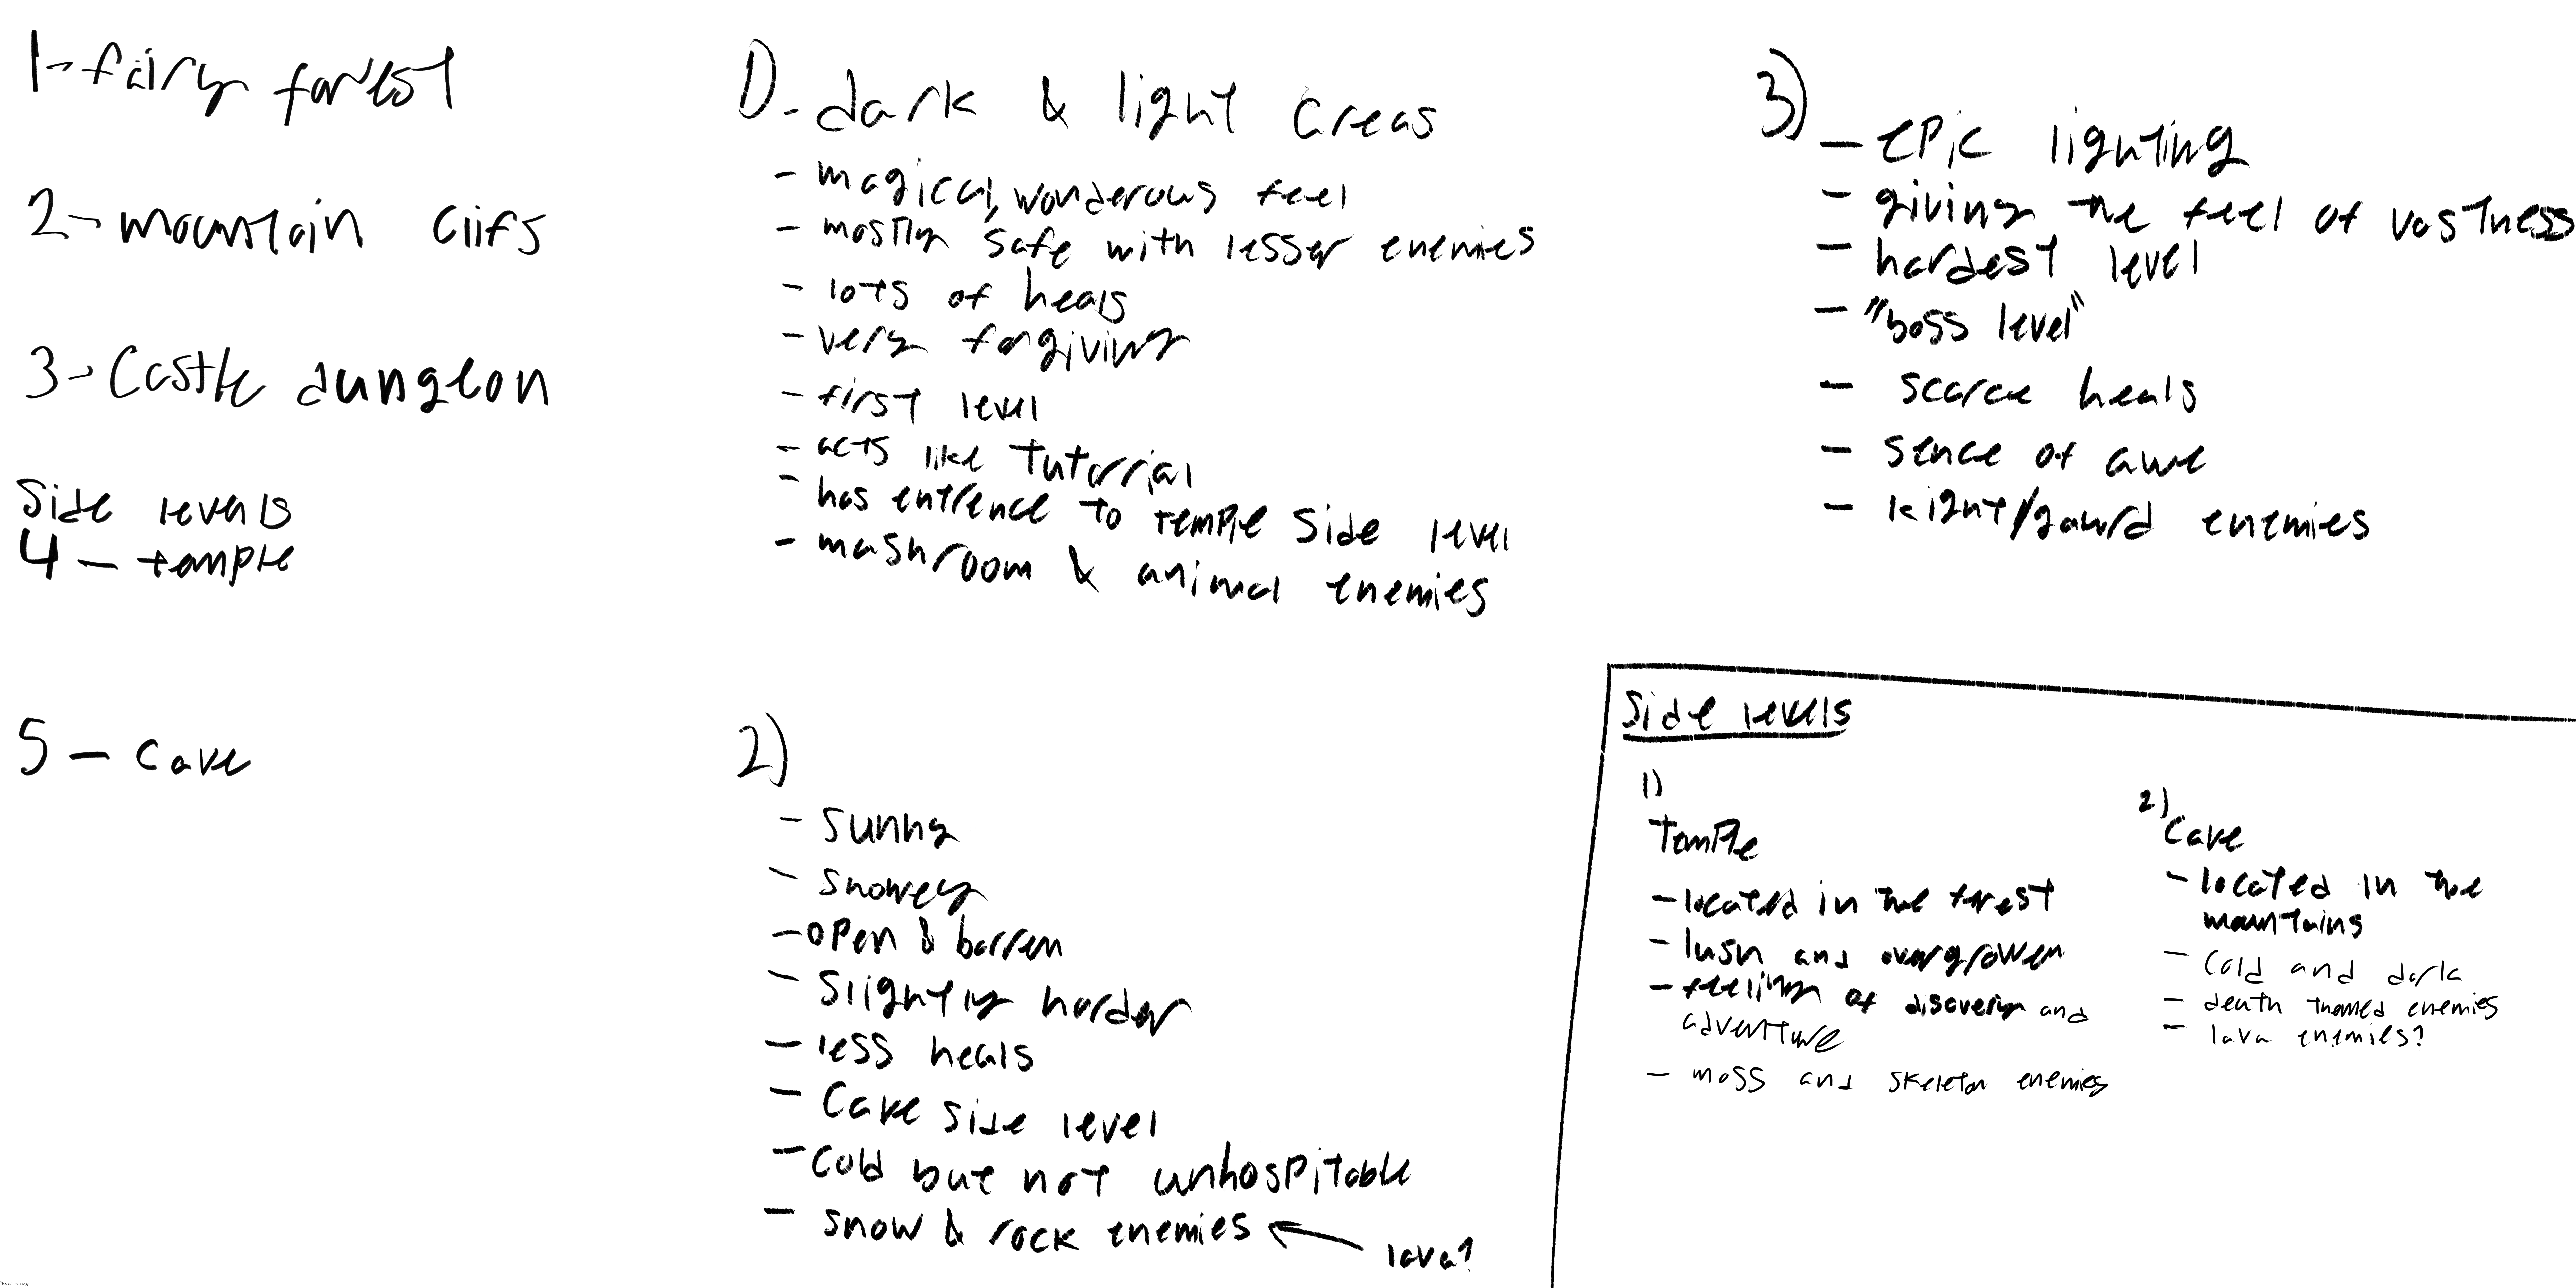 1-fairy forest
2-mountain clifs
3-Castle dungeon
Side levels
4-temple
5-cave
1)-dark & light areas
-magical, wonderous feel
-mostly safe with lesser enemies
-lots of heals
-very forgiving
-first level
-acts like tutorrial
-has entrence to temple side level
-mashroom & animal enemies
2)
-sunny
-snowey
-open & barren
-slightly harder
-less heals
-Cave side level
-cold but not unhospitable
-snow & rock enemies
lava?
3)
-epic lighting
-giving the feel of vastness
-hardest level
-"boss level"
-scarce heals
-sence of awe
-kight/gaurd enemies
Side levels
1)
Temple
-located in the forest
-lush and overgrowen
-feeling of discovery and
adventure
-moss and skeleton enemies
2)
Cave
-located in the
mountains
-cold and dark
-death themed enemies
-lava enemies?